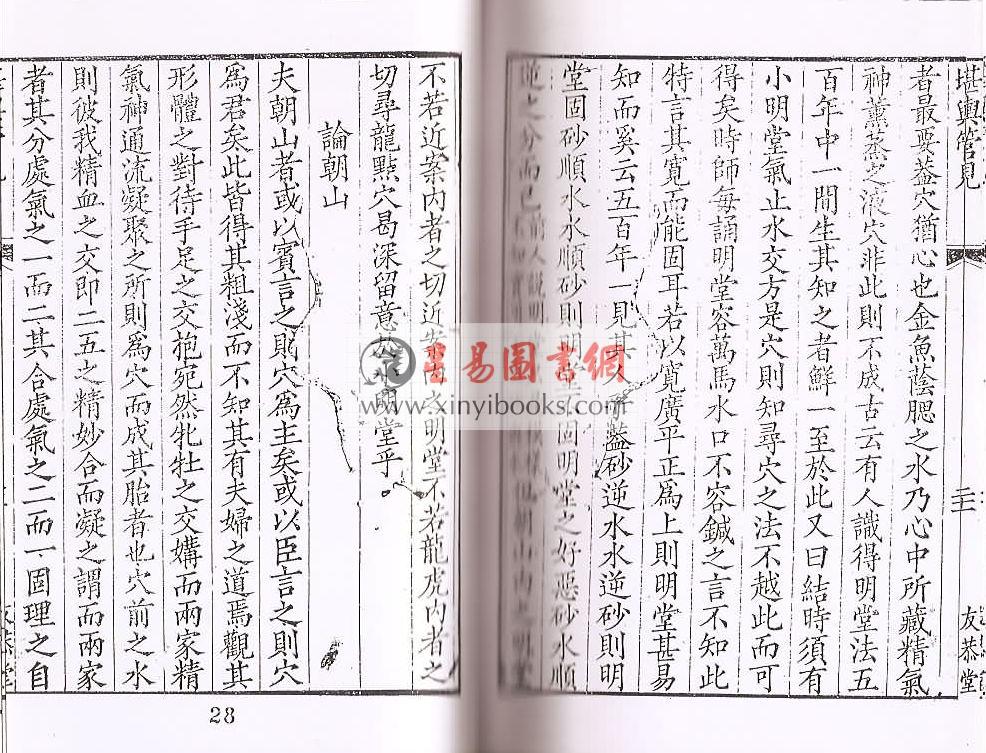 堪輿管見
二十
友恭堂
者最要葢穴猶心也金魚蔭腮之水乃心中所藏精氣
神薰蒸之液穴非此則不成古云有人識得明堂法五
百年中一間生其知之者鮮一至於此又曰結時須有
小明堂氣止水交方是穴則知尋穴之法不越此而可
得矣時師每誦明堂容萬馬水口不容鍼之言不知此
特言其寬而能固耳若以寬廣平正爲上則明堂甚易
知而奚云五百年一見其人乎葢砂逆水水逆砂則明
堂固砂順水水順砂則明堂不固明堂之好惡砂水順
逆之分而已
不若近案内者之切近案内之明堂不若龍虎内者之
切尋龍點穴曷深留意於小明堂乎
論朝山
夫朝山者或以賓言之則穴爲主矣或以臣言之則穴
爲君矣此皆得其粗淺而不知其有夫婦之道焉觀其
形體之對待手足之交抱宛然牝牡之交媾而兩家精
氣神通流凝聚之所則爲穴而成其胎者也穴前之水
則彼我精血之交即二五之精妙合而凝之謂而兩家
者其分處氣之一而二其合處氣之二而一固理之自
28
星易圖書網
www.xinyibooks.com